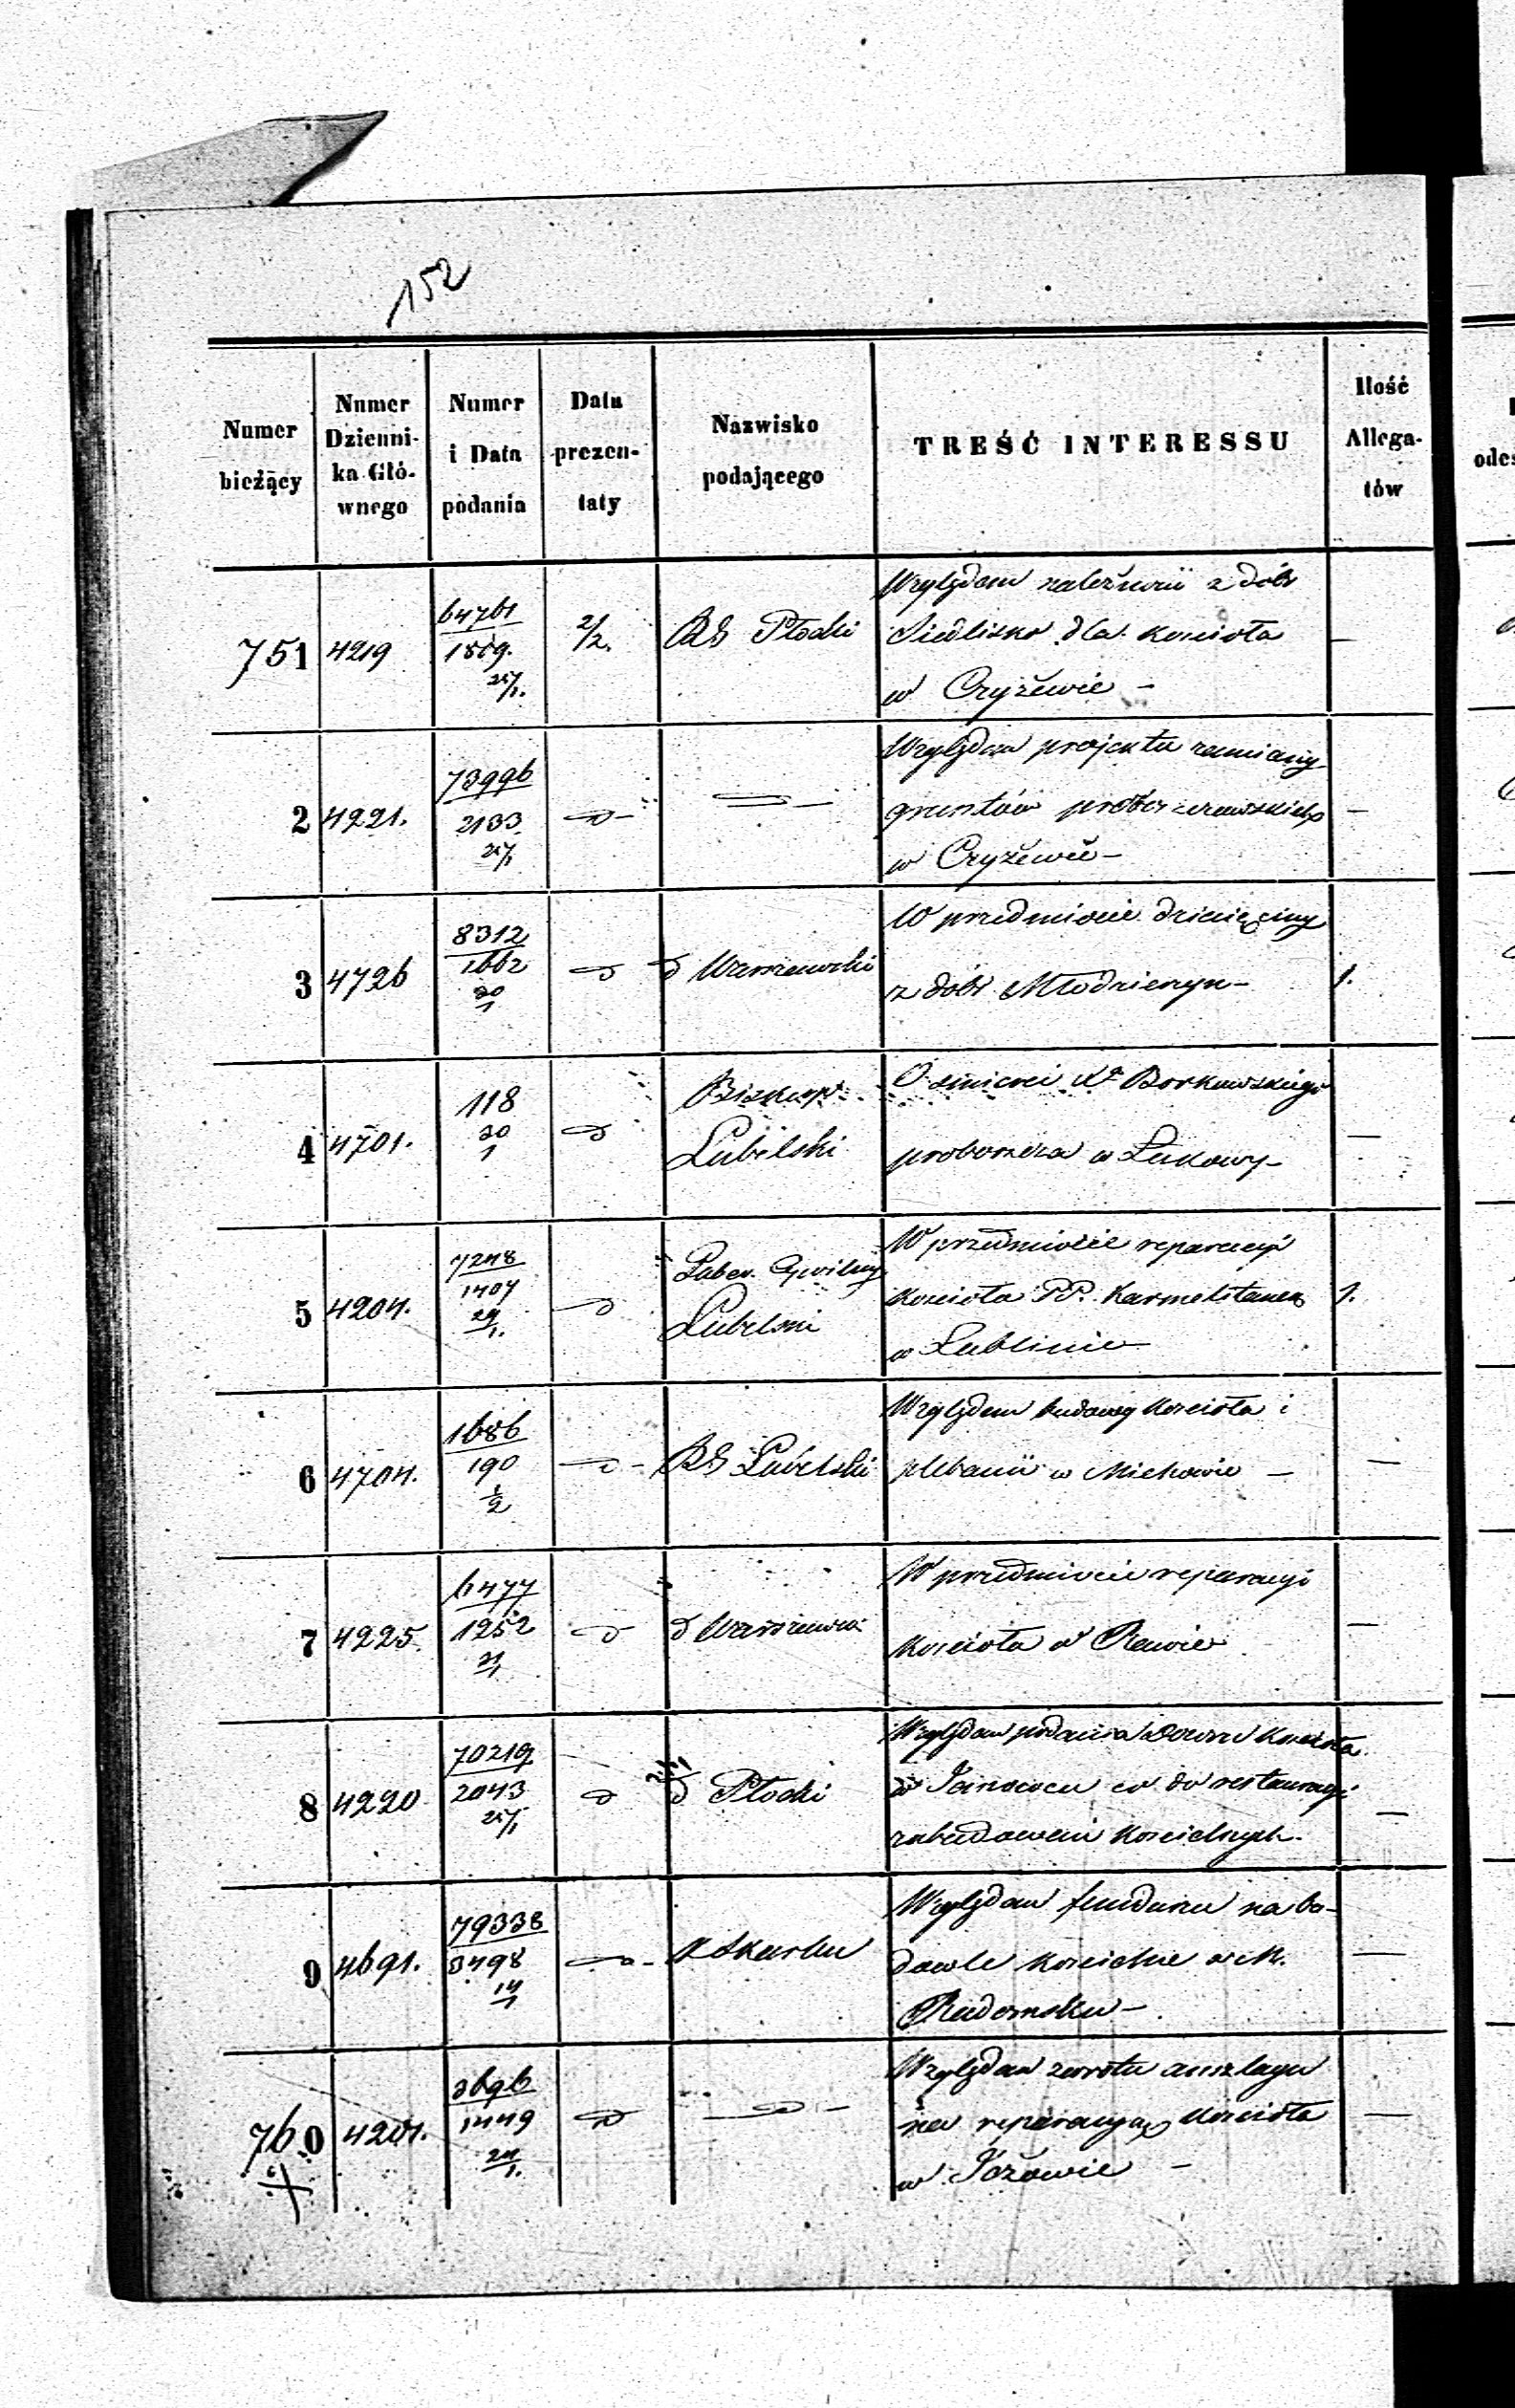 152
Numer bieżący
Numer Dzienni-ka Głó-wnego
Numer i Data podania
Data prezen-taty
Nazwisko podającego
TREŚĆ INTERESSU
Ilość Allega-tów
751 4219 64761 1559. 25/1. 2/2. RG Płocki
Względem należności z dóbr
Siedlisko dla kościoła
w Czyżewie –
2 4221. 73996 2133 25/1
Względem projektu zamiany
gruntów proboszczowskich
w Czyżewie –
3 4726 8312 1662 30/1 d Warszawski
W przedmiocie dziesięciny
z dóbr Młodzieszyn – 1.
4 4701. 118 30/1
Biskup
Lubelski
O śmierci Xa Borkowskiego
proboszcza w Łukowy –
5 4204. 7248 1407 29/1.
Guber. Cywilny
Lubelski
W przedmiocie reparacyi
kościoła PP. Karmelitanek 1.
w Lublinie
6 4704. 1686 190 1/2 RG Lubelski
Względem budowy kościoła i
plebanii w Miekowie –
7 4225. 6477 1252 21/1 d Warszawski
W przedmiocie reparacyi
kościoła w Rawie
8 4220 70219 2043 25/1 d Płocki
Względem podania Dozoru kościoła
w co do restauracyi
zabudowań kościelnych.
9 4691. 79338 3498 14/1 K Skarbu
Względem funduszu na bu-
dowle kościelne w M.
Radomsku –
760 4201. 3696 1449 24/1.
Względem zwrotu anszlagu
na reparacyą kościoła
w Jeżowie –